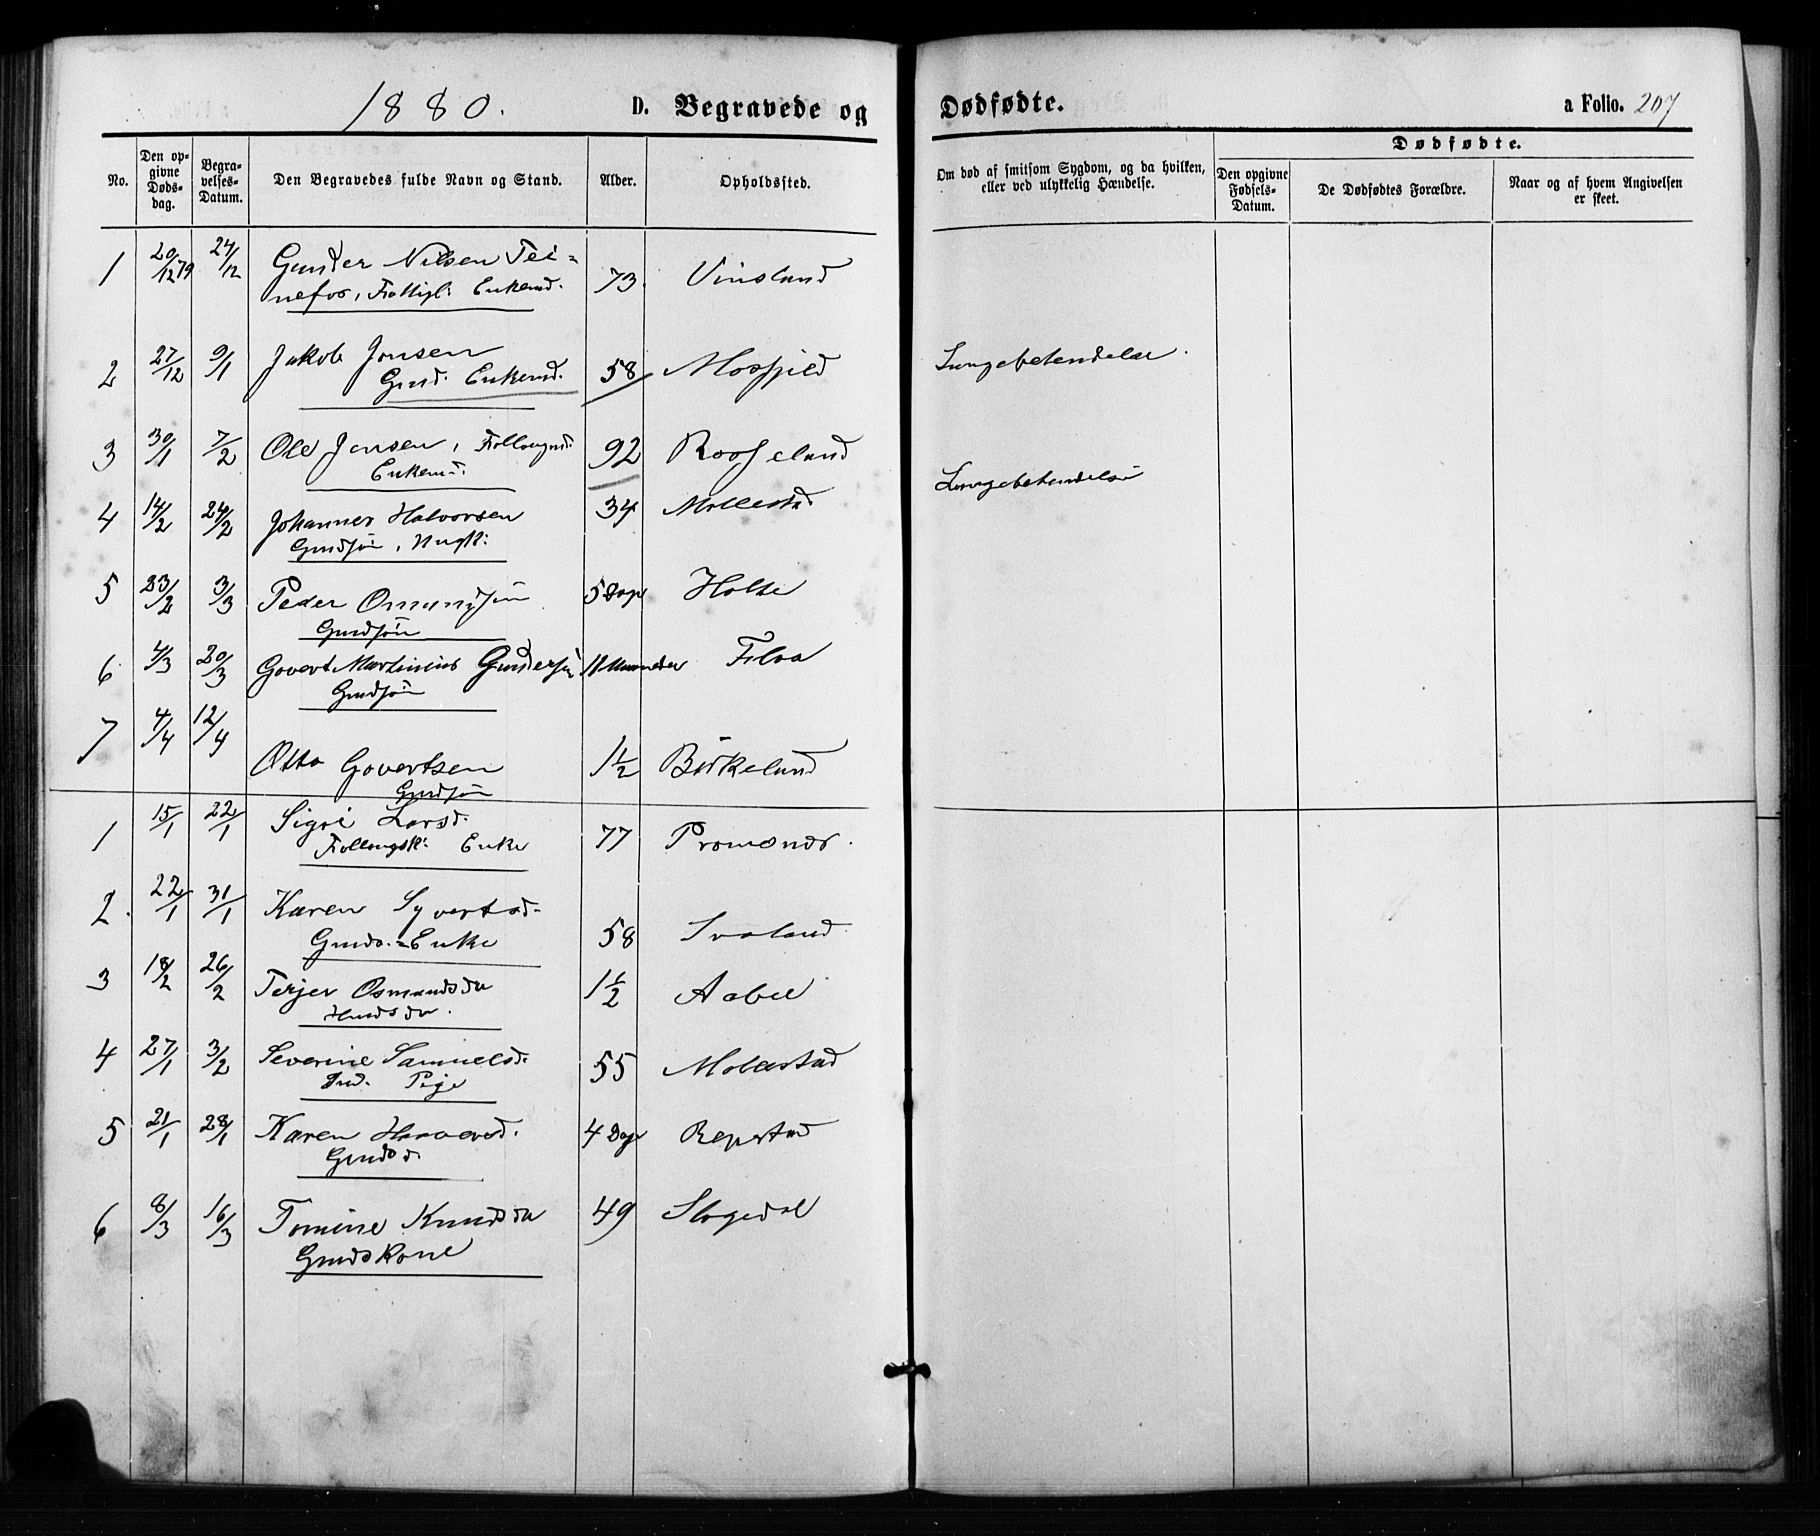 1880. D. Begravede og Dødfødte. a Folio. 207
No.
Den opgivne Dødsdag.
Begravelses-Datum.
Den Begravedes fulde Navn og Stand.
Alder.
Opholdssted.
Om død af smitsom Sygdom, og da hvilken, eller ved ulykkelig Hændelse.
Dødfødte.
Den opgivne Fødsels-Datum.
De Dødfødtes Forældre.
Naar og af hvem Angivelsen er skeet.
1 20/12 79 24/12 Gunder Nilsen Tei= 73 Vinsland
nefos, Enkemd.
2 27/12 9/1 Jakob Jonsen 58 Mosfjeld Lungebetendelse.
Gmd. Enkemd.
3 30/1 7/2 Ole Jensen, 92 Roosseland
Enkemd. Lungebetendelse
4 14/2 24/2 Johannes Halvorsen 34 Mollestad
Gmdsøn, Ungk:
5 23/2 3/3 Peder Osmundsøn 5 Dage Holte
Gmdsøn
6 4/3 20/3 Govert Martinius Gundersøn 11 Maaneder
Gmdsøn
7 4/4 12/4 Otto Govertsen 1½ Birkeland
Gmdsøn
1 15/1 22/1 Sigri Larsd. 77
Enke
2. 22/1 31/1 Karen Syvertsd. 58 Svaland
Gmds.=Enke
3 18/2 26/2 Terjer Osmundsdr 1½ Aabel
Husdsdr.
4 27/1 3/2 Severine Samuelsd. 55 Mollestad
Ind. Pige
5 21/1 28/1 Karen 4 Dage Repstad
Gmdsd.
6 8/3 16/3 Tomine Knudsdr 49 Slogedal
Gmdskone